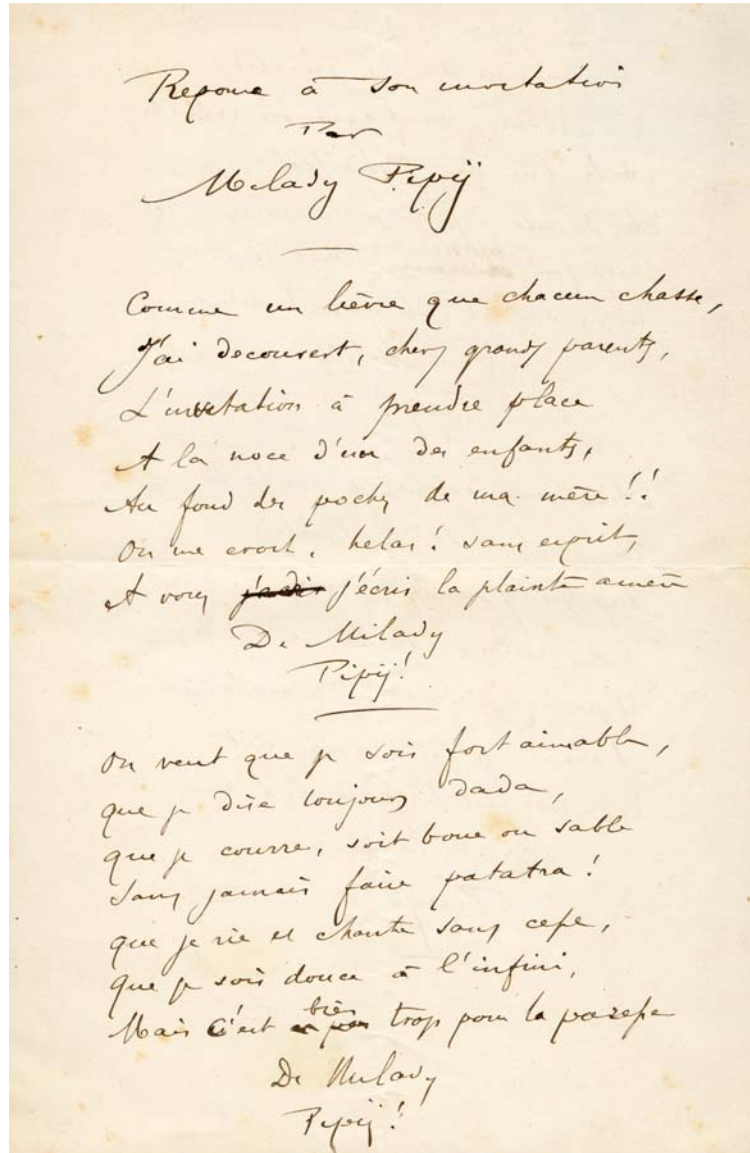 Reponse à son invitation
Par
Milady Pipÿ
Comme un lièvre que chacun chasse,
J'ai decouvert, chers grands parents,
L'invitation à prendre place
A la noce d'un des enfants,
Au fond des poches de ma mère !!
On me croit, helas ! sans esprit,
A vous jadis j'écris la plainte amère
De Milady
Pipÿ !
On veut que je sois fort aimable,
que je dise toujours dada,
que je courre, soit boue ou sable
Sans jamais faire patatra !
que je rie et chante sans cesse,
que je sois douce à l'infini,
Mais c'est bien trop pour la paresse
De Milady
Pipÿ !